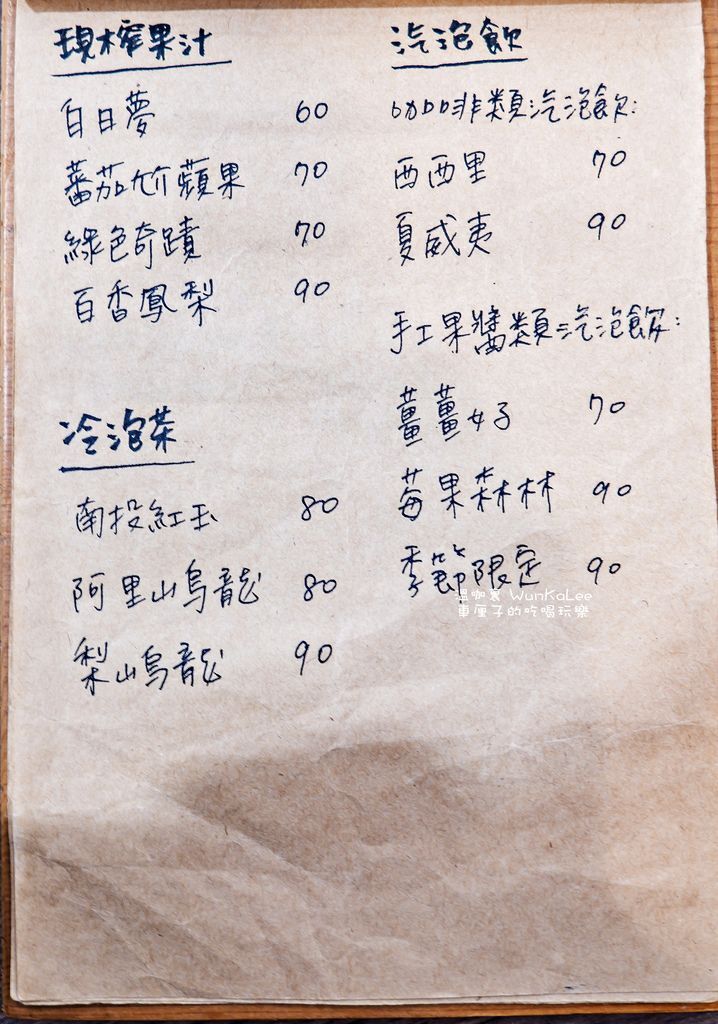 現榨果汁
白日夢 60
蕃茄尬蘋果 70
綠色奇蹟 70
百香鳳梨 90
冷泡茶
南投紅玉 80
阿里山烏龍 80
梨山烏龍 90
汽泡飲
咖啡類汽泡飲:
西西里 70
夏威夷 90
手工果醬類汽泡飲:
薑薑好 70
莓果森林 90
季節限定 90
溫咖裏 WunKaLee
車厘子的吃喝玩樂